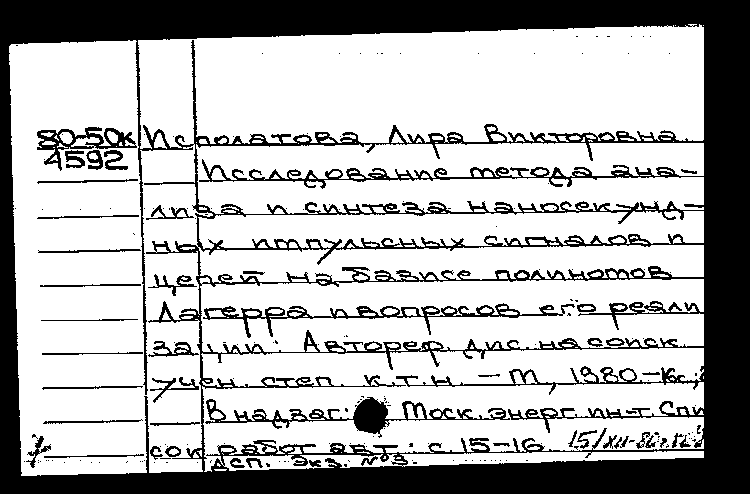 80-50к Исполатова, Лира Викторовна.
4592
Исследование метода ана-
лиза и синтеза наносекунд-
ных импульсных сигналов и
цепей на базисе полиномов
Лагерра и вопросов его реали
зации: Автореф. дис. на соиск.
учен. степ. к.т.н. – М, 1980.-16с.;2
В надзаг: Моск. энерг. ин-т. Спи
сок работ авт.: с. 15-16
ДСП. Экз. №3.